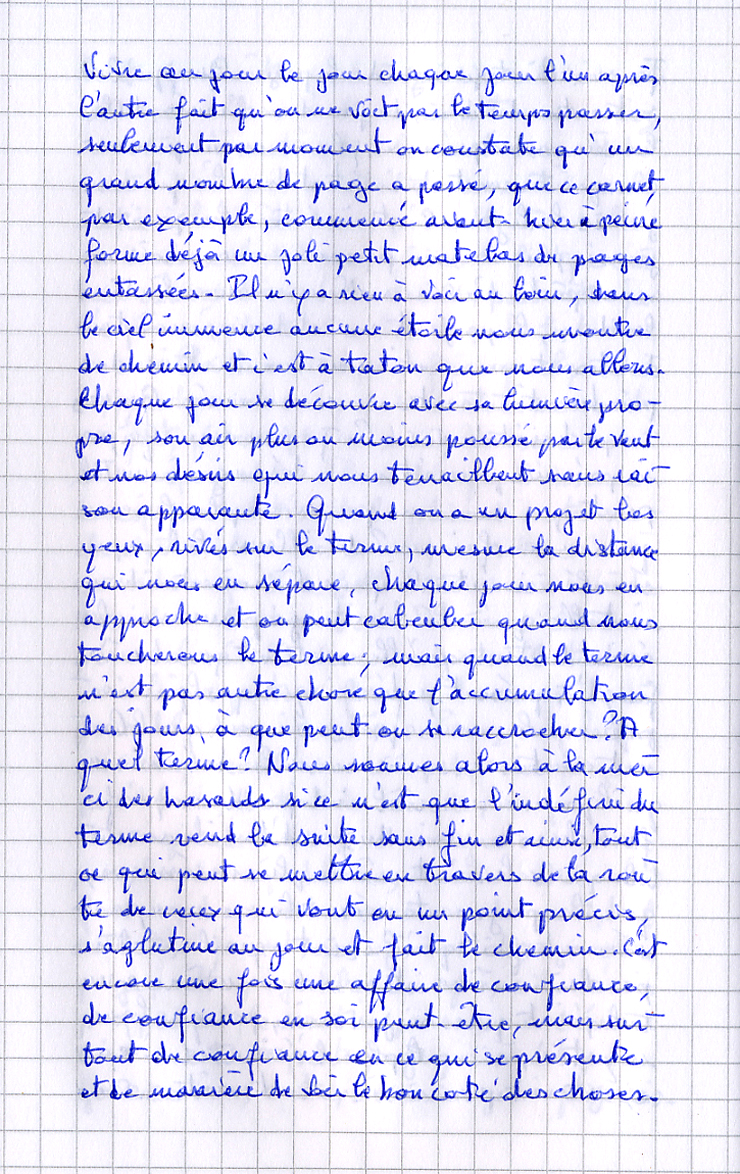 Vivre au jour le jour chaque jour l'un après
l'autre fait qu'on ne voit pas le temps passer,
seulement par moment on constate qu'un
grand nombre de page a passé, que ce carnet,
par exemple, commencé avant-hier à peine
forme déjà un joli petit matelas de pages
entassées. Il n'y a rien à voir au loin, dans
le ciel immence aucune étoile nous montre
de chemin et c'est à taton que nous allons.
Chaque jour se découvre avec sa lumière pro-
pre, son air plus ou moins poussé par le vent
et nos désirs qui nous tenaillent sans rai
son apparante. Quand on a un projet les
yeux, rivés sur le terme, mesure la distance
qui nous en sépare, chaque jour nous en
approche et on peut calculer quand nous
toucherons le terme; mais quand le terme
n'est pas autre chose que l'accumulation
des jours, à que peut on se raccrocher? A
quel terme? Nous sommes alors à la mer
ci des hasards si ce n'est que l'indéfini du
terme rend la suite sans fin et ainsi, tout
ce qui peut se mettre en travers de la rou
te de ceux qui vont en un point précis,
s'aglutine au jour et fait le chemin. C'est
encore une fois une affaire de confiance,
de confiance en soi peut-être, mais sur
tout de confiance en ce qui se présente
et de manière de voir le bon coté des choses.